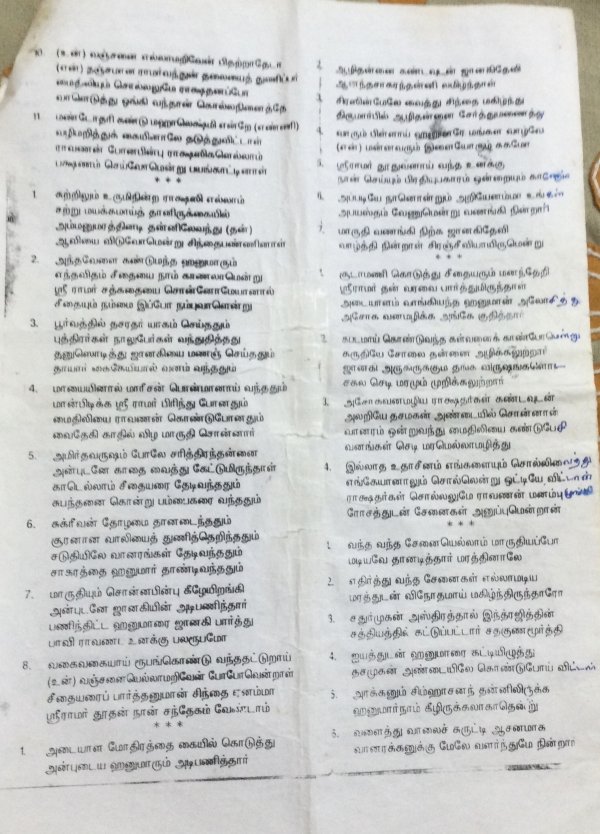 10. (உன்) வஞ்சனை எல்லாமறிவேன் பிதற்றாதேடா
(என்) தஞ்சமான ராமர்வந்துன் தலையைத் துணிப்பர்
மைதிலியும் சொல்லலுமே ராக்ஷதனப்போ
வாளெடுத்து ஓங்கி வந்தான் கொல்லநினைத்தே
11. மண்டோதரி கண்டு மஹாலெக்ஷ்மி என்றே (எண்ணி)
வழிமறித்துக் கையினாலே தடுத்துவிட்டாள்
ராவணன் போனபின்பு ராக்ஷஸிகளெல்லாம்
பக்ஷணம் செய்வோமென்று பயங்காட்டினாள்
* * *
1 சுற்றிலும் உருமிநின்ற ராக்ஷஸி எல்லாம்
சற்று மயக்கமாய்த் தானிருக்கையில்
அம்மனுமரத்தினடி தன்னிலேவந்து (தன்)
ஆவியை விடுவோமென்று சிந்தைபண்ணினாள்
2. அந்தவேளை கண்டுமந்த ஹனுமாரும்
எந்தவிதம் சீதையை நாம் காணலாமென்று
ஸ்ரீ ராமர் சத்கதையை சொன்னோமேயானால்
சீதையும் நம்மை இப்போ நம்புவாளென்று
3. பூர்வத்தில் தசரதர் யாகம் செய்ததும்
புத்திரர்கள் நாலுபேர்கள் வந்துதித்தது
தனுஸொடித்து ஜானகியை மணஞ் செய்ததும்
தாயார் கைகேய்யால் வனம் வந்ததும்
4. மாயையினால் மாரீசன் பொன்மானாய் வந்ததும்
மான்பிடிக்க ஸ்ரீ ராமர் பிரிந்து போனதும்
மைதிலியை ராவணன் கொண்டுபோனதும்
வைதேகி காதில் விழ மாருதி சொன்னார்
5. அமிர்தவருஷம் போலே சரித்திரந்தன்னை
அன்புடனே காதை வைத்து கேட்டுமிருந்தாள்
காடெல்லாம் சீதையரை தேடிவந்ததும்
கபந்தனை கொன்று பம்பைகரை வந்ததும்
6. சுக்ரீவன் தோழமை தானடைந்ததும்
சூரனான வாலியைத் துணித்தெறிந்ததும்
சடுதியிலே வானரங்கள் தேடிவந்ததும்
சாகரத்தை ஹனுமார் தாண்டிவந்ததும்
7. மாருதியும் சொன்னபின்பு கீழேயிறங்கி
அன்புடனே ஜானகியின் அடிபணிந்தார்
பணிந்திட்ட ஹனுமாரை ஜானகி பார்த்து
பாவி ராவணடா உனக்கு பலரூபமோ
8. வகைவகையாய் ரூபங்கொண்டு வந்ததட்டுறாய்
(உன்) வஞ்சனையெல்லாமறிவேன் போபோவென்றாள்
சீதையரைப் பார்த்தனுமான் சிந்தை ஏனம்மா
ஸ்ரீராமர் தூதன் நான் சந்தேகம் வேண்டாம்
* * *
1. அடையாள மோதிரத்தை கையில் கொடுத்து
அன்புடைய ஹனுமாரும் அடிபணித்தார்
2. ஆழிதன்னை கண்டவுடன் ஜானகிதேவி
ஆனந்தசாகரந்தன்னி லமிழ்ந்தாள்
3. சிரஸின்மேலே வைத்து சிந்தை மகிழ்ந்து
திருமார்பில் ஆழிதன்னை சேர்த்துமணைத்து
4. வாரும் பிள்ளாய் ஹனுமாரே மங்கள வாழ்வே
(என்) மன்னவரும் இளையோரும் சுகமோ
5. ஸ்ரீராமர் தூதுவனாய் வந்த உனக்கு
நான் செய்யும் பிரதியுபகாரம் ஒன்றையும் காணேம்
6. அப்படியே நானொன்றும் அறியேனம்மா உங்கள்
அபயஸ்தம் வேணுமென்று வணங்கி நின்றார்
7. மாருதி வணங்கி நிற்க ஜானகிதேவி
வாழ்த்தி நின்றாள் சிரஞ்சீவியாயிருமென்று
* * *
1. சூடாமணி கொடுத்து சீதையரும் மனந்தேறி
ஸ்ரீராமர் தன் வரவை பார்த்துமிருந்தாள்
அடையாளம் வாங்கியந்த ஹனுமான் அலோசித்து
அசோக வனமழிக்க அங்கே குதித்தார்
2. கபடமாய் கொண்டுவந்த கள்வனைக் காண்போமென்று
கருதியே சோலை தன்னை அழிக்கலுற்றார்
ஜானகி அருகிருக்கும் தங்க விருஷங்களொட
சகல செடி மரமும் முறிக்கலுற்றார்
3. அசோகவனமழிய ராக்ஷதர்கள் கண்டவுடன்
அலறியே தசமகன் அண்டையில் சொன்னாள்
வானரம் ஒன்றுவந்து மைதிலியை கண்டுபேசி
வனங்கள் செடி மரமெல்லாமழித்து
4. இல்லாத உதாசீனம் எங்களையும் சொல்லிவைத்து
எங்கேயானாலும் சொல்லென்று ஒட்டியே விட்டான்
ராக்ஷதர்கள் சொல்லலுமே ராவணன் மனம்பு
ரோசத்துடன் சேனைகள் அனுப்புமென்றான்
* * *
1. வந்த வந்த சேனையெல்லாம் மாருதியப்போ
மடியவே தானடித்தார் மரத்தினாலே
2. எதிர்த்து வந்த சேனைகள் எல்லாமடிய
மரத்துடன் விநோதமாய் மகிழ்ந்திருந்தாரோ
3. சதுர்முகன் அஸ்திரத்தால் இந்த்ரஜித்தின்
சத்தியத்தில் கட்டுப்பட்டார் சதகுணமூர்த்தி
4. ஐயத்துடன் ஹனுமாரை கட்டியிழுத்து
தசமுகன் அண்டையிலே கொண்டுபோய் விட்டான்
5. அரக்கனும் சிம்ஹாசனந் தன்னிலிருக்க
ஹனுமார்நாம் கீழிருக்கலாகாதென்று
6. வளைத்து வாலைச் சுருட்டி ஆசனமாக
வானரக்கனுக்கு மேலே வளர்ந்துமே நின்றார்